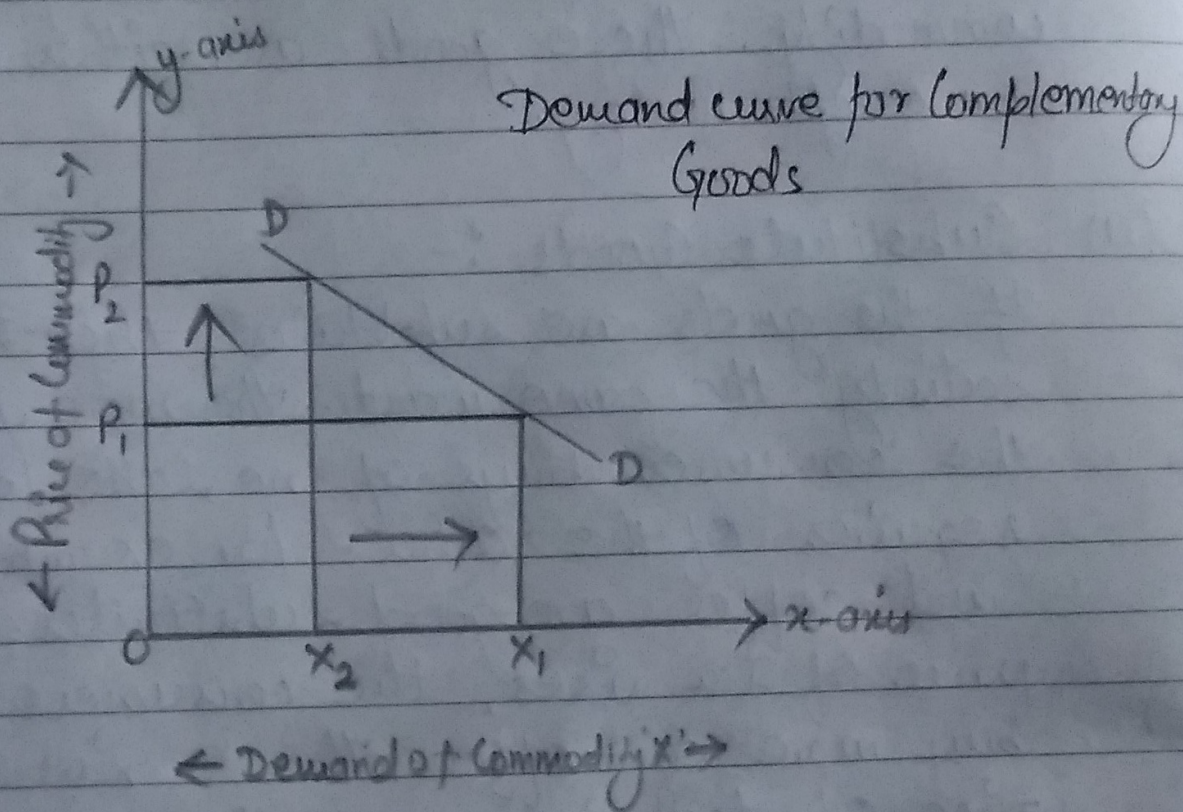 y-axis
Demand curve for Complementary
Goods
D
← Price of Commodity →
P2
P1
D
O
X2
X1
x-axis
← Demand of Commodity 'X' →